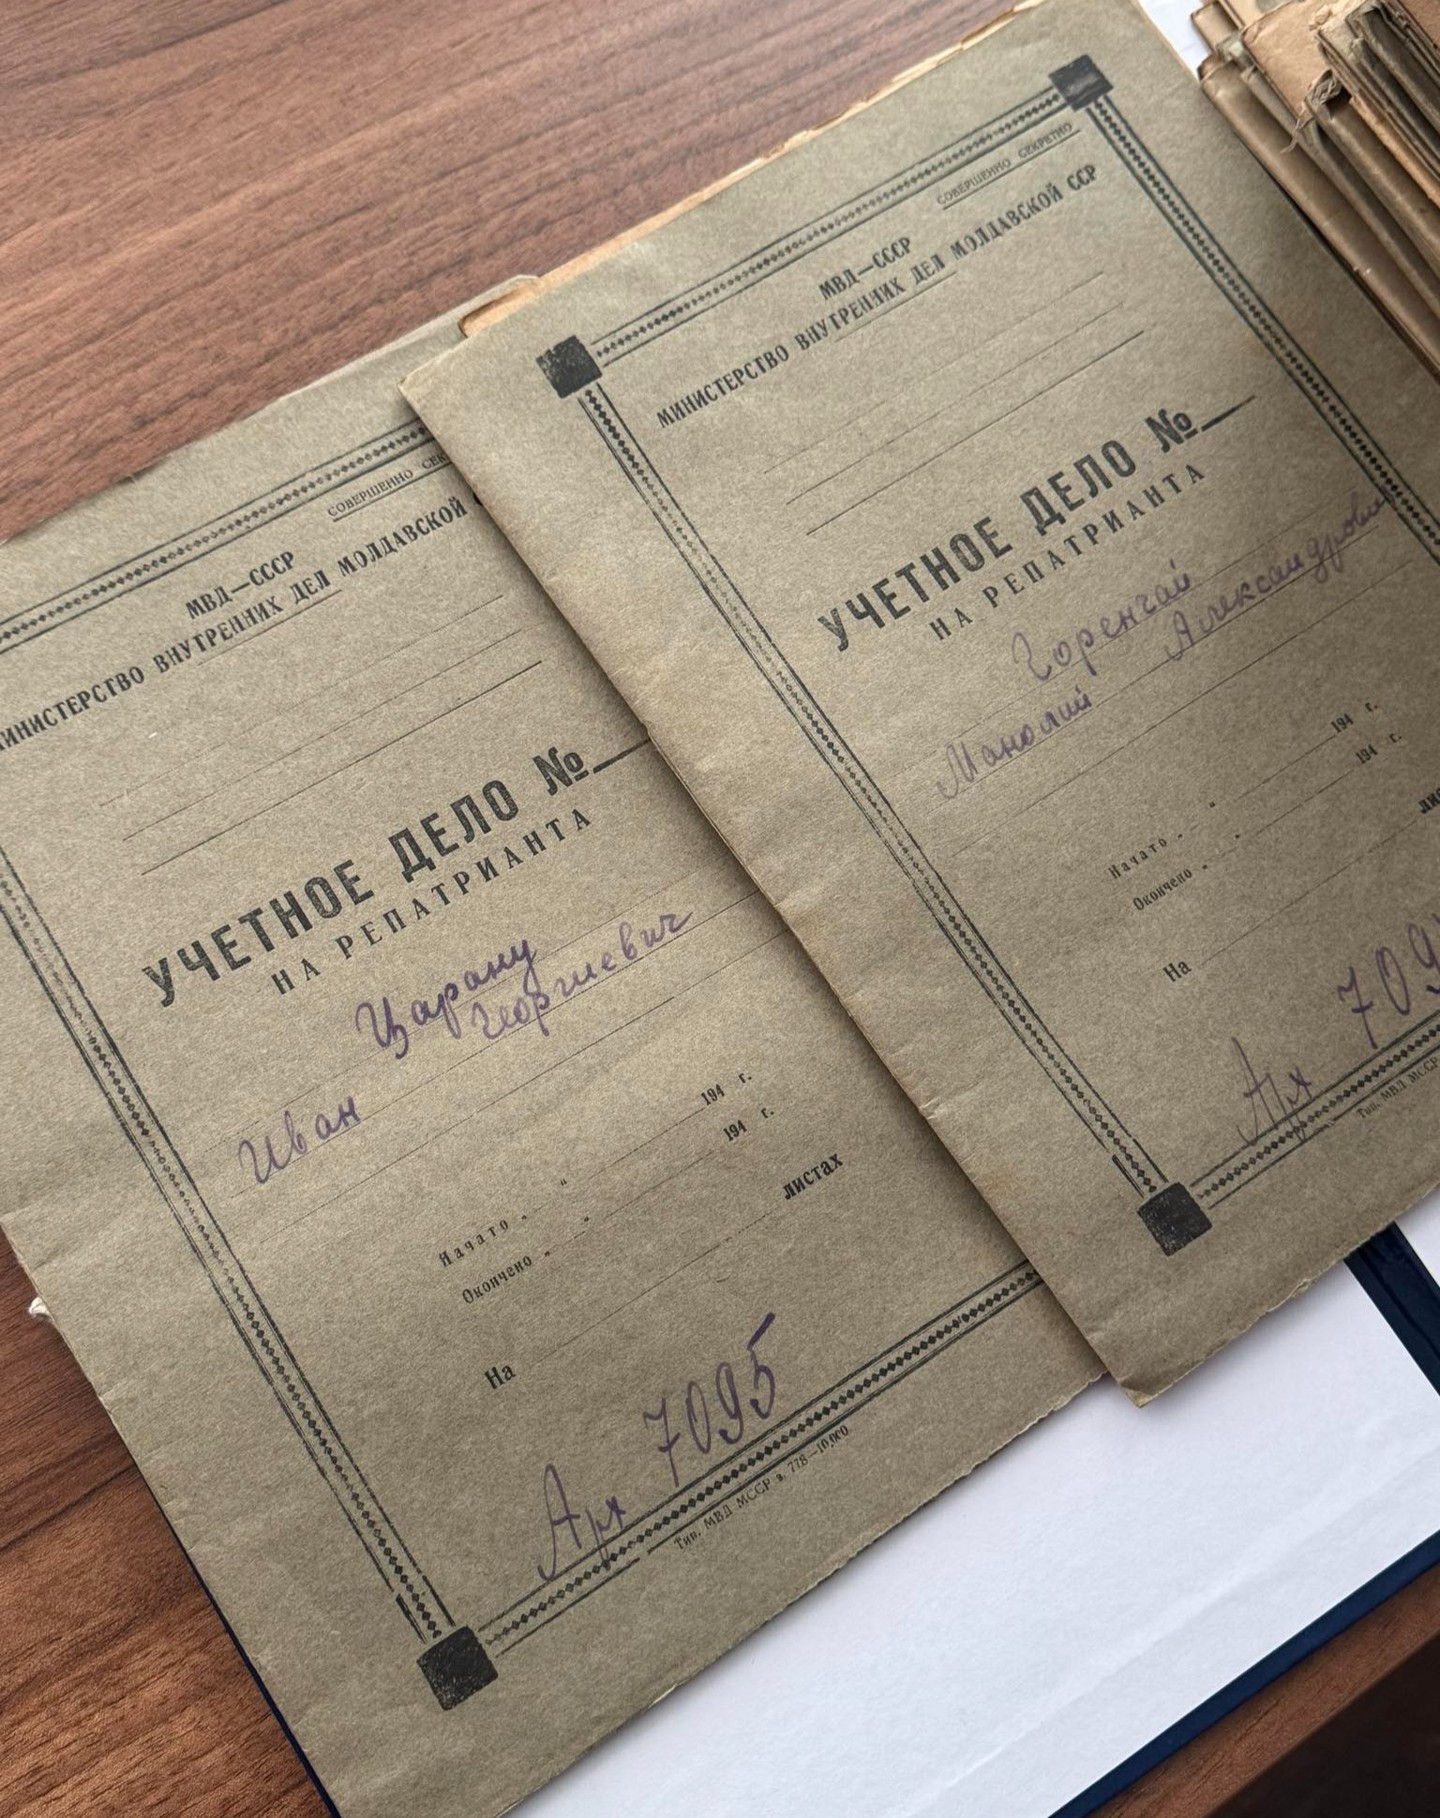 СОВЕРШЕННО СЕК
МВД—СССР
МИНИСТЕРСТВО ВНУТРЕННИХ ДЕЛ МОЛДАВСКОЙ
УЧЕТНОЕ ДЕЛО №
НА РЕПАТРИАНТА
Царану
Иван Георгиевич
Начато „ “ 194 г.
Окончено „ “ 194 г.
На листах
Арх 7095
Тип. МВД МССР з. 778—10.000
СОВЕРШЕННО СЕКРЕТНО
МВД—СССР
МИНИСТЕРСТВО ВНУТРЕННИХ ДЕЛ МОЛДАВСКОЙ ССР
УЧЕТНОЕ ДЕЛО №
НА РЕПАТРИАНТА
Горенчай
Манолий Александрович
Начато „ “ 194 г.
Окончено „ “ 194 г.
На лис
Арх 709
Тип. МВД МССР